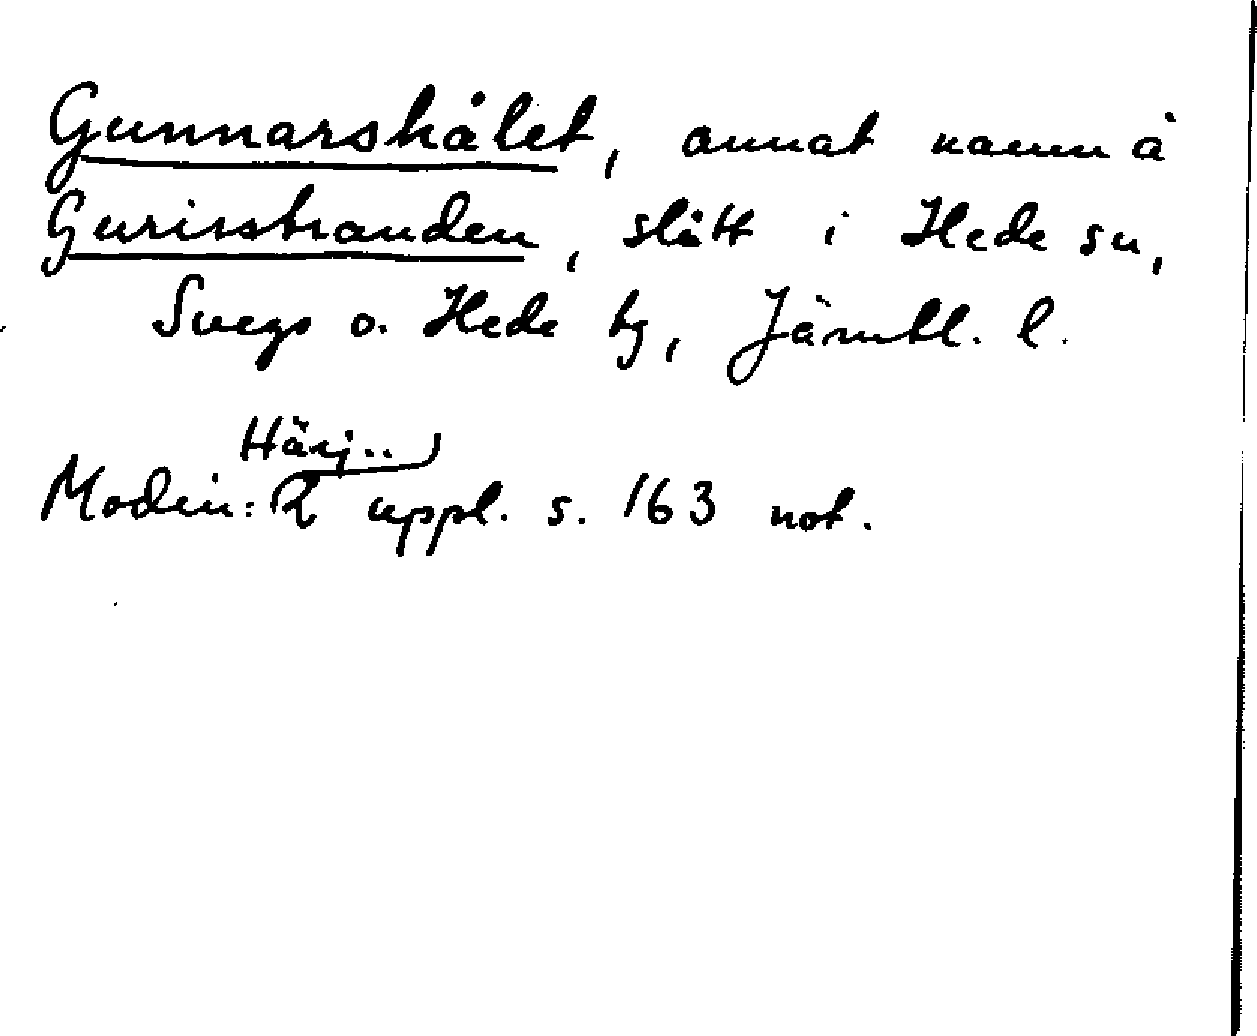 Gunnarshålet, annat namn å
Gurisstranden, slått i Hede sn,
Svegs o. Hede tg, Jämtl. l.
Härj..
Modin: 2 uppl. s. 163 not.